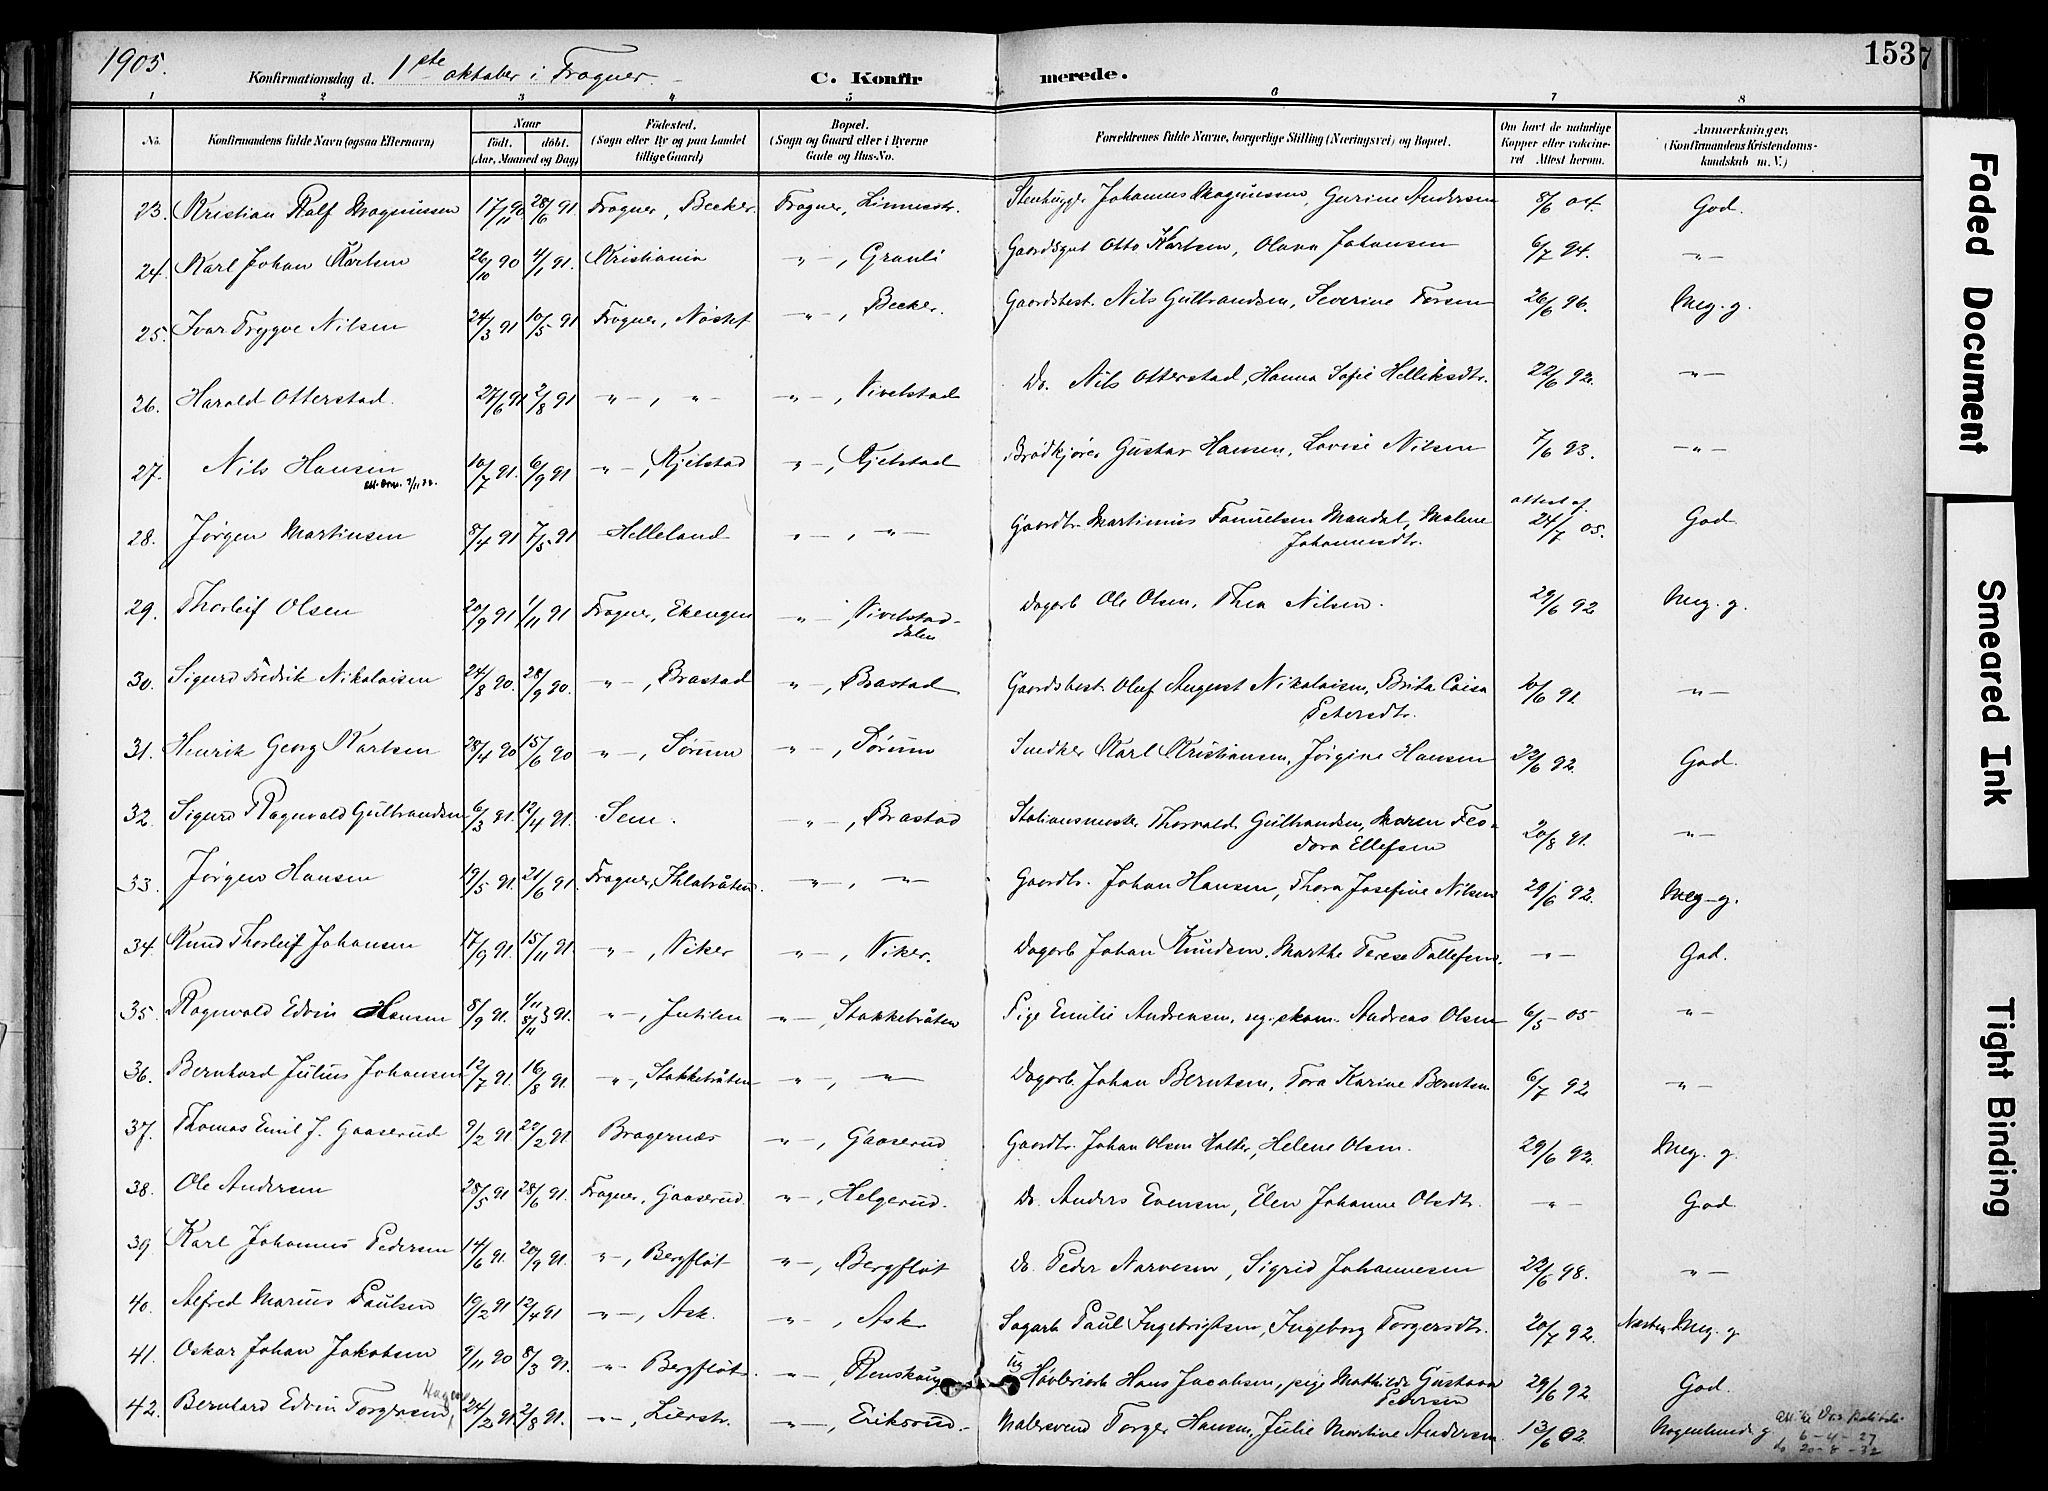 1905.
Konfirmationsdag d. 1ste oktober i Frogner.
C. Konfirmerede.
153
7
1 2 3 4 5 6 7 8
No. | Konfirmandens fulde Navn (ogsaa Efternavn) | Naar født. døbt. (Aar, Maaned og Dag) | Fødested. (Sogn eller By og paa Landet tillige Gaard) | Bopæl. (Sogn og Gaard eller i Byerne Gade og Hus-No. | Forældrenes fulde Navne, borgerlige Stilling (Næringsvei) og Bopæl. | Om havt de naturlige Kopper eller vaccineret. Attest herom. | Anmærkninger. (Konfirmandens Kristendomskundskab m. V.)
23. Kristian Rolf Magnussen 17/11 90 28/6 91 Frogner, Becker. Frogner, Linnesstr. Stenhugger Johannes Magnussen, Gurine Andersen 8/6 04. God.
24. Karl Johan Karlsen 26/10 90 4/1 91. Kristiania " — , Granli Gaardsgut Otto Karlsen, Olava Johansen 6/7 94. — " —
25. Ivar Trygve Nilsen 24/3 91 10/5 91 Frogner, Nøstet " — , Becker. Gaardsbest. Nils Gulbrandsen, Severine Torsen 26/6 96. Meg. g.
26. Harald Otterstad. 27/6 91 2/8 91 " — , " — " — , Vivelstad Do. Nils Otterstad, Hanna Sofie Helliksdtr. 22/6 92. — " —
27. Nils Hansen 10/7 91. 6/9 91 " — , Kjelstad " — , Kjelstad Brødkjører Gustav Hansen, Lovise Nilsen 7/6 93. — " —
28. Jørgen Martinsen 8/4 91 7/5 91 Helleland " — , " — Gaardbr. Martinius Tanielsen Mandal, Malene Johannesdtr. attest af 24/7 05. God
29. Thorleif Olsen 20/9 91 1/11 91 Frogner, Ekengen " — , Vivelstad-dalen Dagarb Ole Olsen, Thea Nilsen. 29/6 92 Meg. g.
30. Sigurd Fredrik Nikolaisen 24/8 90. 28/9 90. " — , Brastad " — , Brastad Gaardsbest. Oluf August Nikolaisen, Brita Caisa Petersdtr. 10/6 91. — " —
31. Henrik Georg Karlsen 28/4 90 15/6 90 " — , Sørum " — , Sørum Snedker Karl Kristiansen, Jørgine Hansen 22/6 92. God.
32. Sigurd Ragnvald Gulbrandsen 6/3 91. 12/4 91. Sem. " — , Brastad Stationsmester Thorvald Gulbrandsen, Maren Feodora Ellefsen 20/8 91. — " —
33. Jørgen Hansen 19/5 91. 21/6 91. Frogner, Ihlabråten. " — , " — Gaardbr. Johan Hansen, Thora Josefine Nilsen 29/6 92. Meg. g.
34. Knud Thorleif Johansen 17/9 91. 15/11 91. " — , Viker " — , Viker. Dagarb Johan Knudsen, Marthe Terese Tollefsen. — " — God.
35. Ragnvald Edvin Hansen 8/9 91. 1/11 8/11 91. " — , Jutilen " — , Stokkebråten Pige Emilie Andreasen, ug. skom. Andreas Olsen 6/5 05 — " —
36. Bernhard Julius Johansen 12/7 91. 16/8 91. " — , Stokkebråten " — , " — Dagarb. Johan Berntsen, Tora Karine Berntsen 6/7 92 — " —
37. Thomas Emil J. Gaaserud 9/2 91 22/2 91 Bragernæs " — , Gaaserud Gaardbr. Johan Olsen Holter, Helene Olsen. 29/6 92. Meg. g.
38. Ole Andersen 28/5 91 28/6 91. Frogner, Gaaserud. " — , Helgerud. Do. Anders Evensen, Elen Johanne Olsdtr. — " — God.
39 Karl Johannes Pedersen 14/6 91. 20/9 91. " — , Bergfløt " — , Bergfløt Do. Peder Narvesen, Sigrid Johannesen 22/6 98. — " —
40. Alfred Marius Paulsen 19/2 91 12/4 91 " — , Ask. " — , Ask Sagarb Paul Ingebrigtsen, Ingeborg Torgersdtr. 20/7 92. Næsten Meg. g
41. Oskar Johan Jakobsen 9/11 90 8/3 91. " — Bergfløt " — , Renskaug ug Høvleriarb Hans Jacobsen, pige Mathilde Gustava Pedersen 29/6 92 God.
42. Bernhard Edvin Torgersen 24/2 91. 2/8 91. " — , Lierstr. " — , Eriksrud. Malersvend Torger Hansen, Julie Martine Andersen. 13/6 02. Nogenlunde g
6-4-27
do 20-8-32
Faded Document
Smeared Ink
Tight Binding